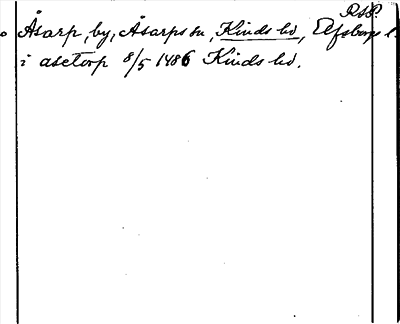 RSP.
Åsarp, by, Åsarps sn, Kinds hd, Elfsborgs l.
i asetorp 8/5 1486 Kinds hd.